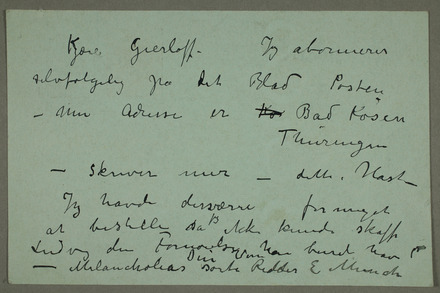 Kjære Gierløff. Jeg abonnerer
selvfølgelig på det Blad Posten
– min Adresse er Bad Kösen
Thüringen
– skriver mer – dette i Hast –
Jeg havde desværre for meget
at bestille så jeg ikke kunde skaffe
den
– Melancholias sorte Ridder E Munch